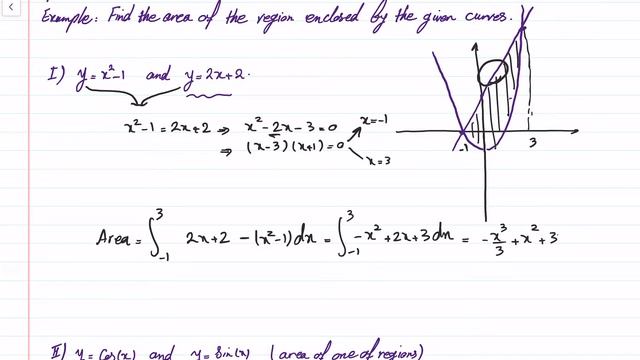 Example: Find the area of the region enclosed by the given curves.
I) y = x² - 1 and y = 2x + 2.
x² - 1 = 2x + 2 ⇒ x² - 2x - 3 = 0
⇒ (x-3)(x+1) = 0
x = -1
x = 3
-1 3
Area = ∫₋₁³ 2x + 2 - (x² - 1) dx = ∫₋₁³ -x² + 2x + 3 dx = -x³/3 + x² + 3
II) y = Cos(x) and y = Sin(x) (area of one of regions)